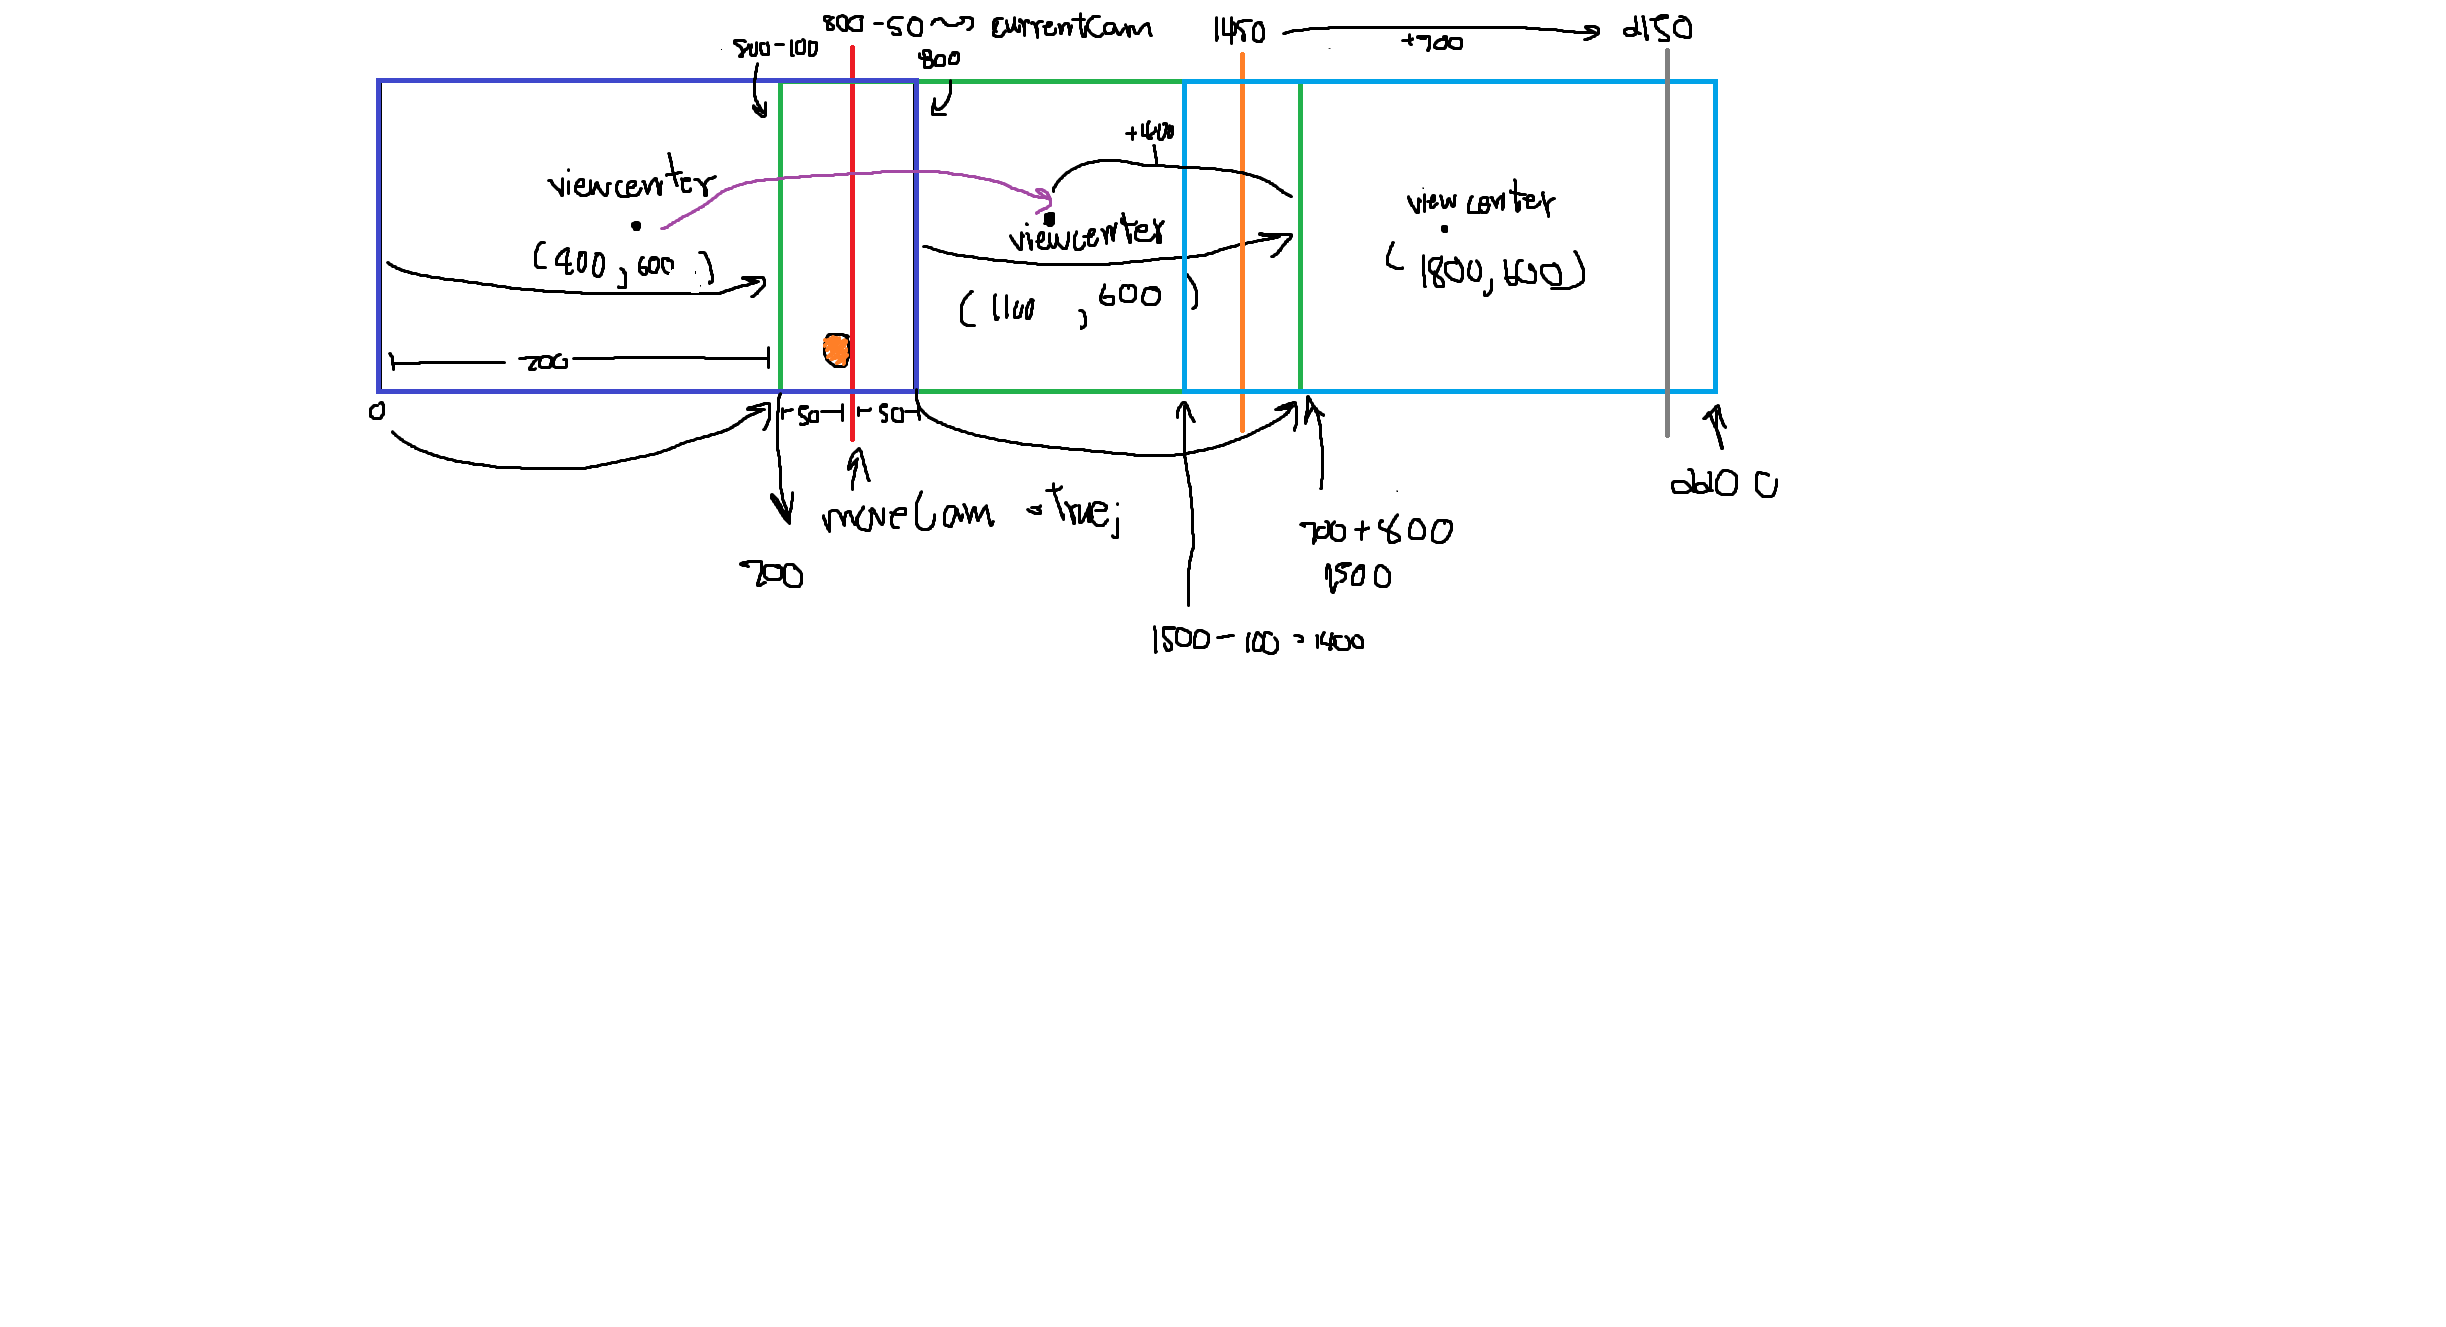 800 - 50 → currentCam
1450
+700
2150
800 - 100
800
+400
viewcenter
(400, 600)
viewcenter
(1100, 600)
view center
(1800, 600)
700
0
50
50
moveCam = true;
700
2200
700 + 800
1500
1500 - 100 = 1400